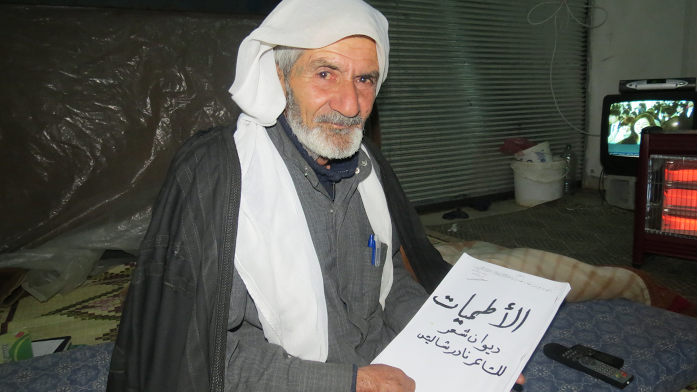 الأطميات
ديوان شعر
للشاعر نادر شاليش